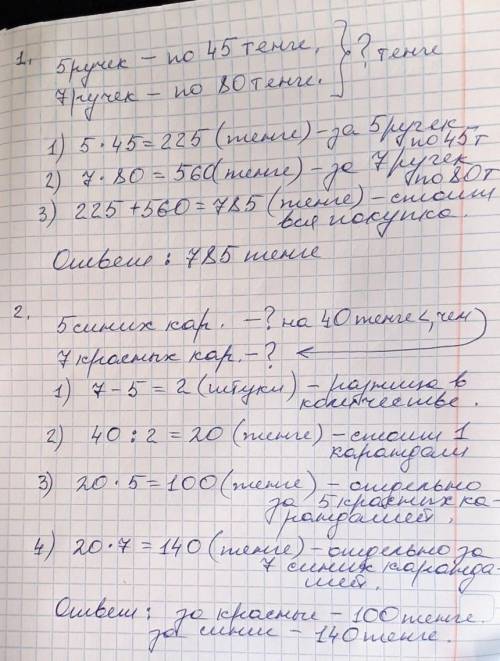 1.
5 ручек – по 45 тенге. } ? тенге
7 ручек – по 80 тенге.
1) 5 · 45 = 225 (тенге) – за 5 ручек
по 45 т
2) 7 · 80 = 560 (тенге) – за 7 ручек
по 80 т
3) 225 + 560 = 785 (тенге) – стоит
вся покупка.
Ответ: 785 тенге
2.
5 синих кар. – ? на 40 тенге <, чем
7 красных кар. – ?
1) 7 – 5 = 2 (штуки) – разница в
количестве.
2) 40 : 2 = 20 (тенге) – стоит 1
карандаш
3) 20 · 5 = 100 (тенге) – отдельно
за 5 красных ка-
рандашей.
4) 20 · 7 = 140 (тенге) – отдельно за
7 синих каранда-
шей.
Ответ: за красные – 100 тенге.
за синие – 140 тенге.